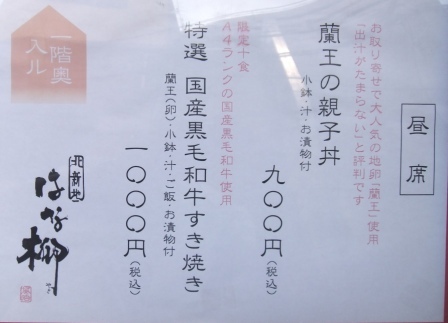 昼席
お取り寄せで大人気の地卵「蘭王」使用
「出汁がたまらない」と評判です
蘭王の親子丼
小鉢・汁・お漬物付
九〇〇円(税込)
限定十食
A4ランクの国産黒毛和牛使用
特選 国産黒毛和牛すき焼き
蘭王(卵)・小鉢・汁・ご飯・お漬物付
一〇〇〇円(税込)
一階奥
入ル
北新地
はな柳